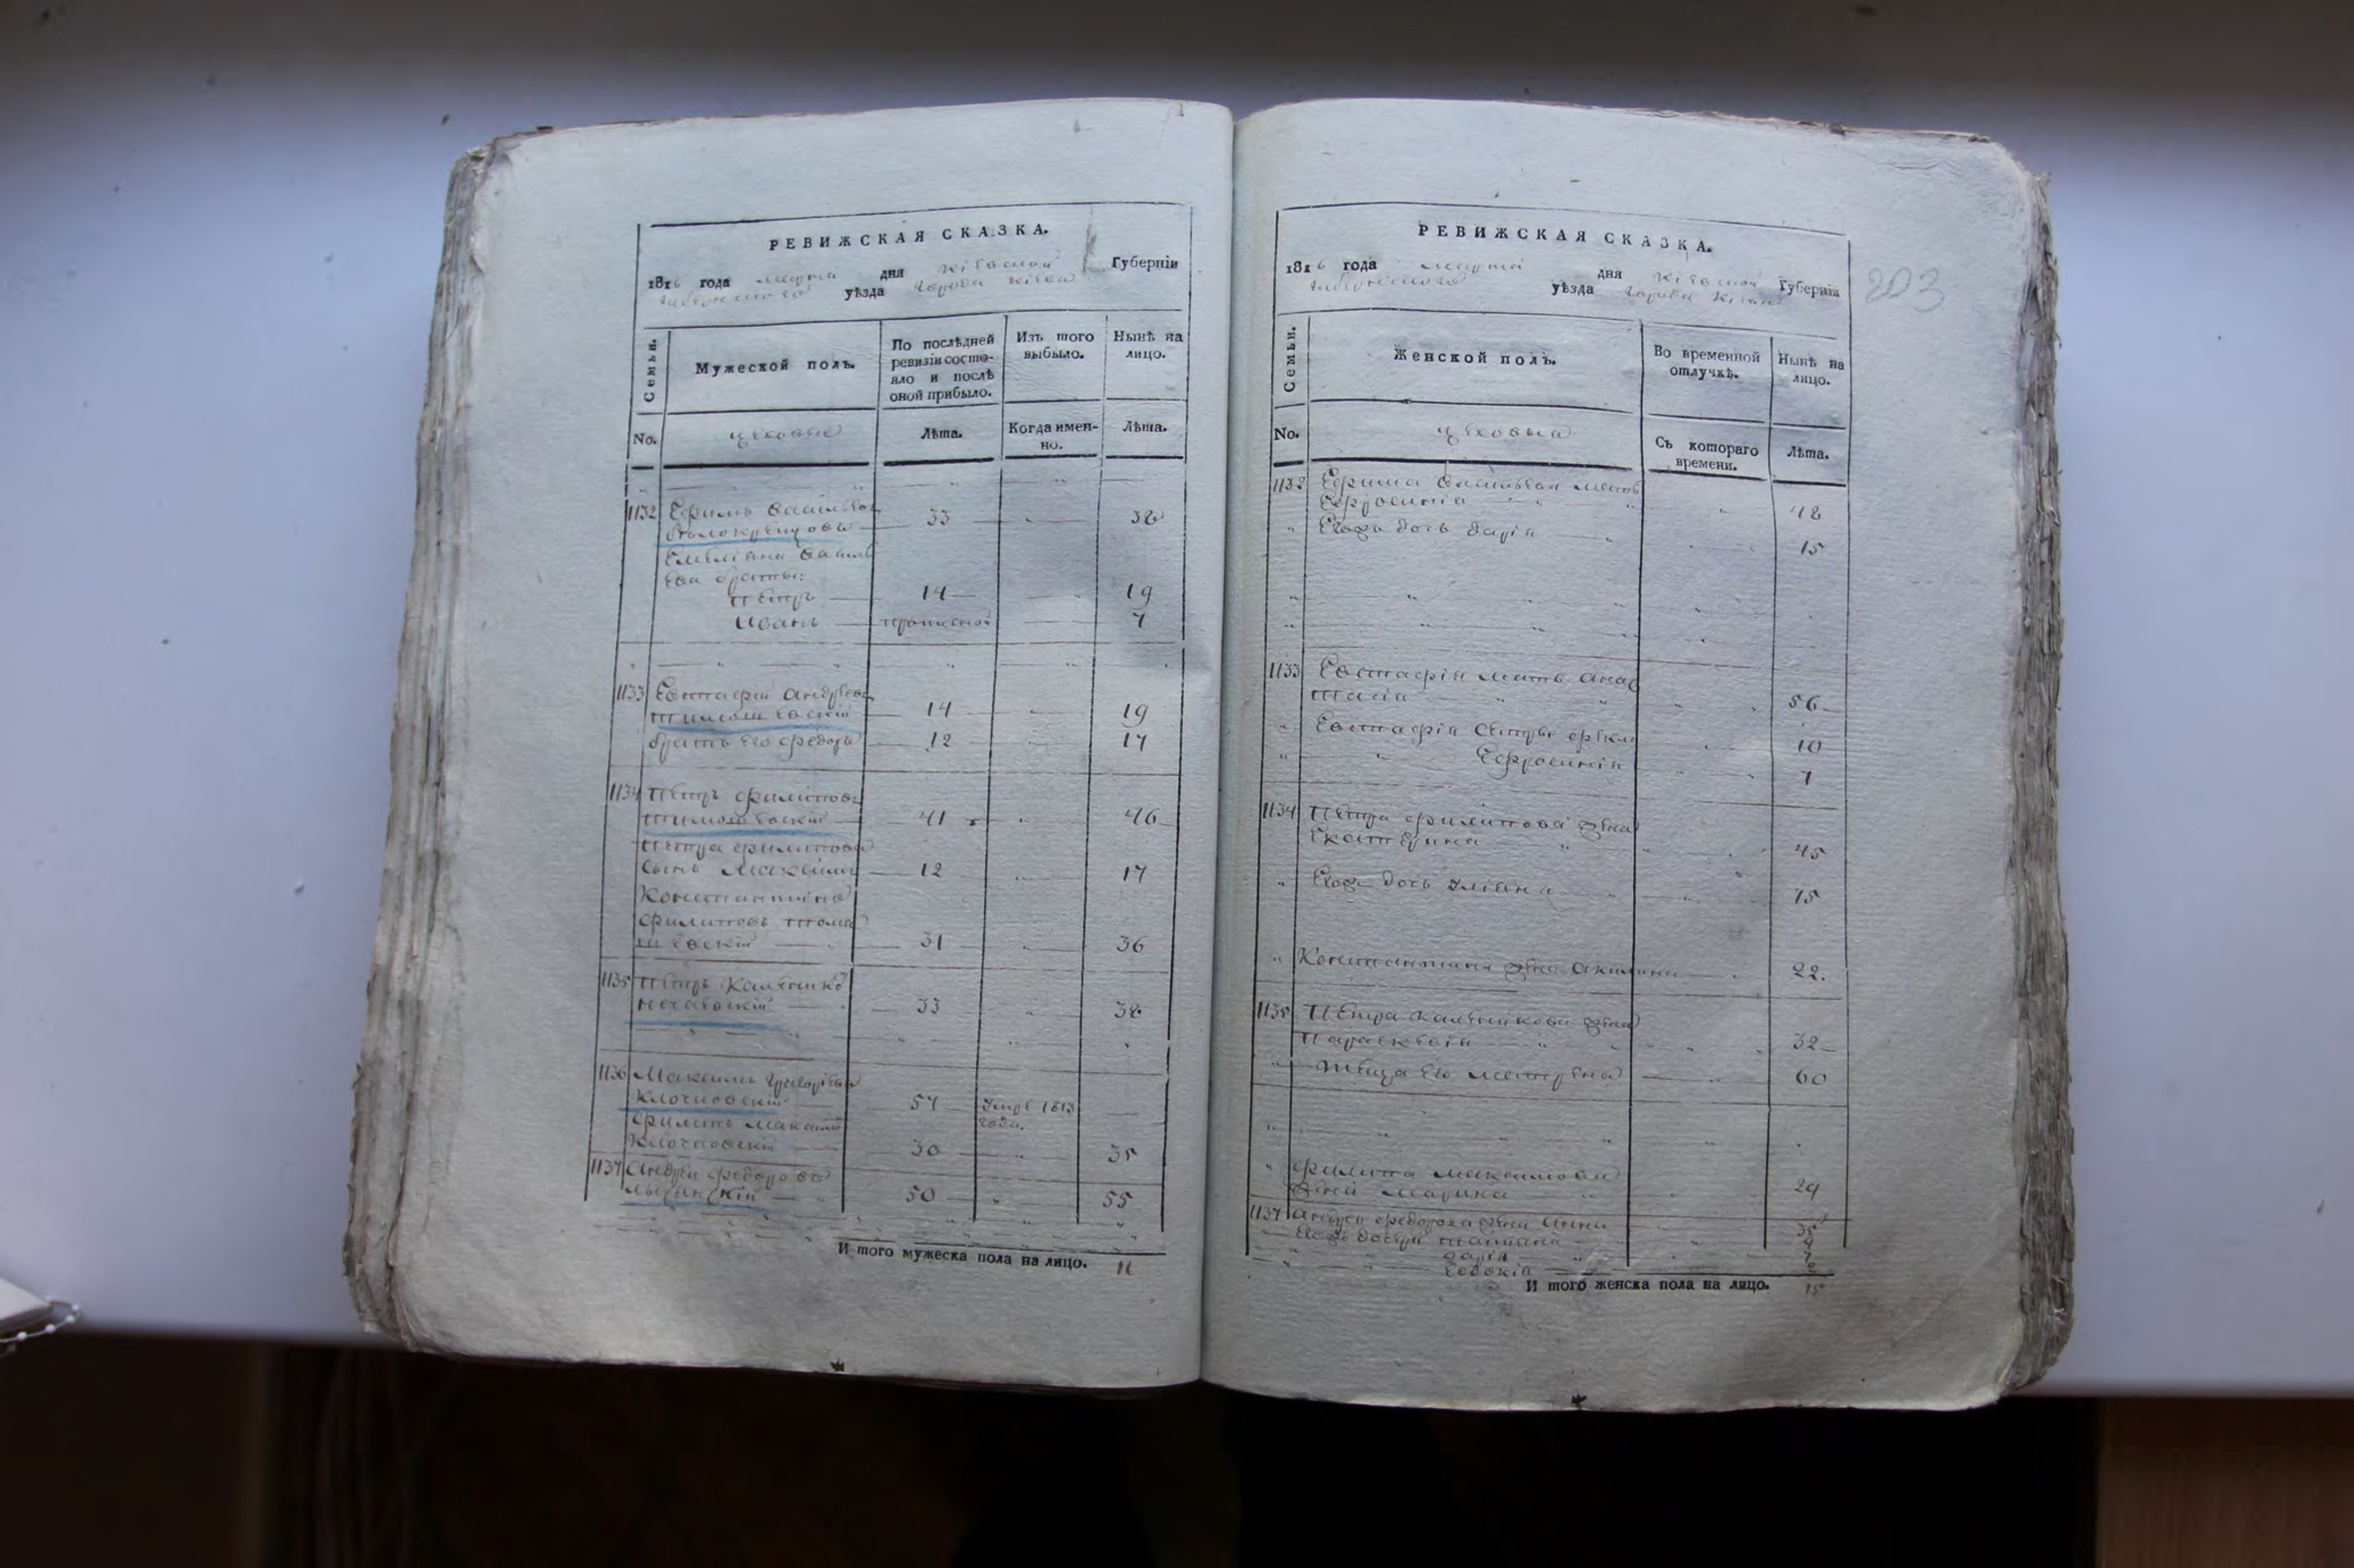 РЕВИЖСКАЯ СКАЗКА.
1816 года марта дня Кіевской Губерніи
уѣзда города Кіева
Семьи.
Мужеской полъ.
По послѣдней ревизіи состояло и послѣ оной прибыло.
Изъ того выбыло.
Нынѣ на лицо.
No.
цеховые
Лѣта.
Когда именно.
Лѣта.
1132 Ефимъ Васильевъ
33 38
Емеліяна Василь
ева братья:
Петръ 14 19
Иванъ прописной 7
1133 Евстафій Андреевъ
Тимошевскій 14 19
братъ его Федоръ 12 17
1134 Петръ Филиповъ
Тимошевскій 41 46
Петра Филипова
сынъ Максимъ 12 17
Константинъ
Филиповъ Тома
шевскій 31 36
1135 Петръ
Нечаевскій 33 38
1136 Максимъ Григорьевъ
Клочковскій 57 умре 1813
года.
Филипъ Максимо
Клочковскій 30 35
1137 Андрей Федоровъ
50 55
И того мужеска пола на лицо. 11
РЕВИЖСКАЯ СКАЗКА.
1816 года марта дня Кіевской Губерніи
уѣзда города Кіева
203
Семьи.
Женской полъ.
Во временной отлучкѣ.
Нынѣ на лицо.
No.
цеховые
Съ котораго времени.
Лѣта.
1132 Ефима Васильева мать
Ефросинія 48
Егожъ дочь Дарія 15
1133 Евстафія мать Анас
тасія 56
Евстафія сестры Фекла 10
Ефросинія 7
1134 Петра Филипова жена
Екатерина 45
Егожъ дочь Уліяна 15
Константина жена Акилина 22.
1135 Петра жена
Параскевія 32
теща его Матрена 60
Филипа Максимова
жена Марина 29
1137 Андрея Федорова жена Анна 35
Егожъ дочери Татіана 9
Дарія 7
Евдокія 2
И того женска пола на лицо. 15